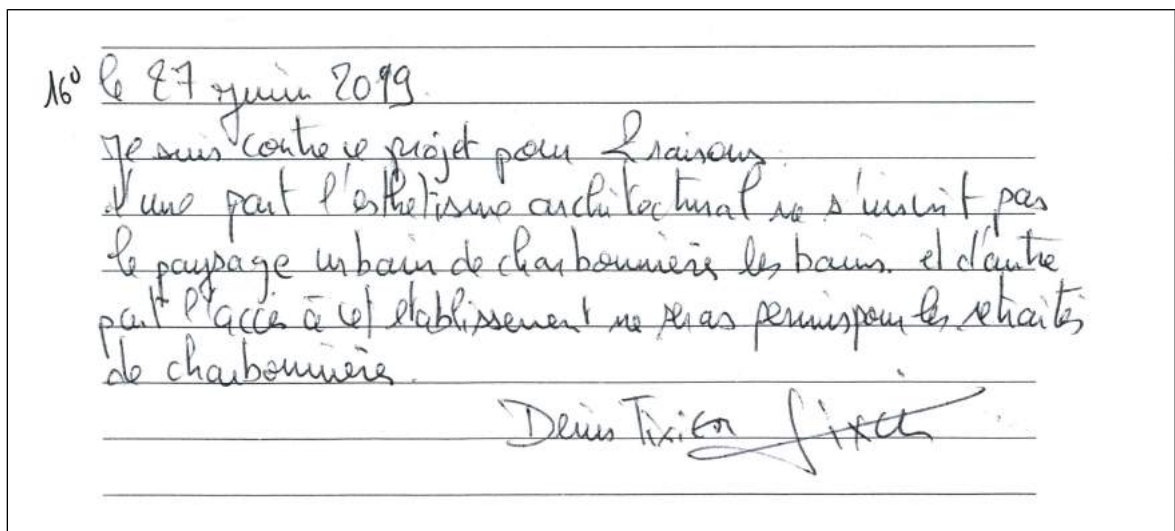 16° le 27 juin 2019.
Je suis contre ce projet pour 2 raisons.
d'une part l'esthétisme architectural ne s'inscrit pas
le paysage urbain de charbonnière les bains. et d'autre
part l'accès à cet établissement ne seras permis pour les retraités
de charbonnière.
Denis Tixier